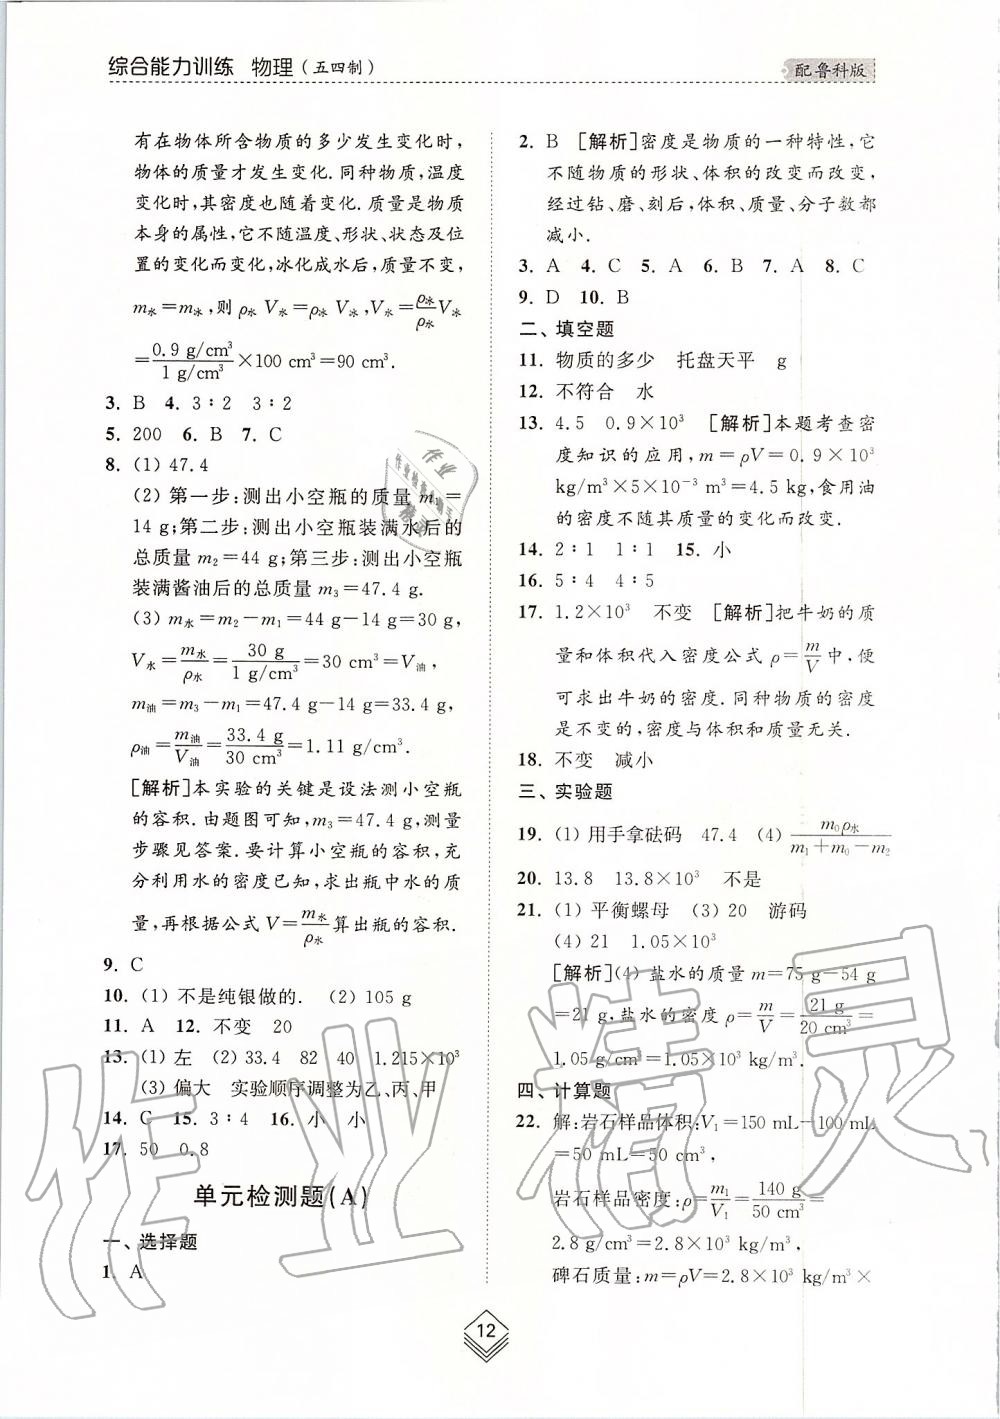 综合能力训练 物理（五四制）
配鲁科版
有在物体所含物质的多少发生变化时,
物体的质量才发生变化.同种物质,温度
变化时,其密度也随着变化.质量是物质
本身的属性,它不随温度、形状、状态及位
置的变化而变化,冰化成水后,质量不变,
m水=m冰,则 ρ水 V水=ρ冰 V冰,V水=ρ冰/ρ水 V冰
=0.9 g/cm³/1 g/cm³×100 cm³=90 cm³.
3. B 4. 3∶2 3∶2
5. 200 6. B 7. C
8. (1) 47.4
(2) 第一步:测出小空瓶的质量 m₁=
14 g;第二步:测出小空瓶装满水后的
总质量 m₂=44 g;第三步:测出小空瓶
装满酱油后的总质量 m₃=47.4 g.
(3) m水=m₂-m₁=44 g-14 g=30 g,
V水=m水/ρ水=30 g/1 g/cm³=30 cm³=V油,
m油=m₃-m₁=47.4 g-14 g=33.4 g,
ρ油=m油/V油=33.4 g/30 cm³=1.11 g/cm³.
[解析]本实验的关键是设法测小空瓶
的容积.由题图可知,m₃=47.4 g,测量
步骤见答案.要计算小空瓶的容积,充
分利用水的密度已知,求出瓶中水的质
量,再根据公式 V=m水/ρ水 算出瓶的容积.
9. C
10. (1) 不是纯银做的. (2) 105 g
11. A 12. 不变 20
13. (1) 左 (2) 33.4 82 40 1.215×10³
(3) 偏大 实验顺序调整为乙、丙、甲
14. C 15. 3∶4 16. 小 小
17. 50 0.8
单元检测题(A)
一、选择题
1. A
2. B [解析]密度是物质的一种特性,它
不随物质的形状、体积的改变而改变,
经过钻、磨、刻后,体积、质量、分子数都
减小.
3. A 4. C 5. A 6. B 7. A 8. C
9. D 10. B
二、填空题
11. 物质的多少 托盘天平 g
12. 不符合 水
13. 4.5 0.9×10³ [解析]本题考查密
度知识的应用,m=ρV=0.9×10³
kg/m³×5×10⁻³ m³=4.5 kg,食用油
的密度不随其质量的变化而改变.
14. 2∶1 1∶1 15. 小
16. 5∶4 4∶5
17. 1.2×10³ 不变 [解析]把牛奶的质
量和体积代入密度公式 ρ=m/V 中,便
可求出牛奶的密度.同种物质的密度
是不变的,密度与体积和质量无关.
18. 不变 减小
三、实验题
19. (1) 用手拿砝码 47.4 (4) m₀ρ水/m₁+m₀-m₂
20. 13.8 13.8×10³ 不是
21. (1) 平衡螺母 (3) 20 游码
(4) 21 1.05×10³
[解析](4) 盐水的质量 m=75 g-54 g
=21 g,盐水的密度 ρ=m/V=21 g/20 cm³=
1.05 g/cm³=1.05×10³ kg/m³.
四、计算题
22. 解:岩石样品体积:V₁=150 mL-100 mL
=50 mL=50 cm³,
岩石样品密度:ρ=m₁/V₁=140 g/50 cm³=
2.8 g/cm³=2.8×10³ kg/m³,
碑石质量:m=ρV=2.8×10³ kg/m³×
12
作业精灵